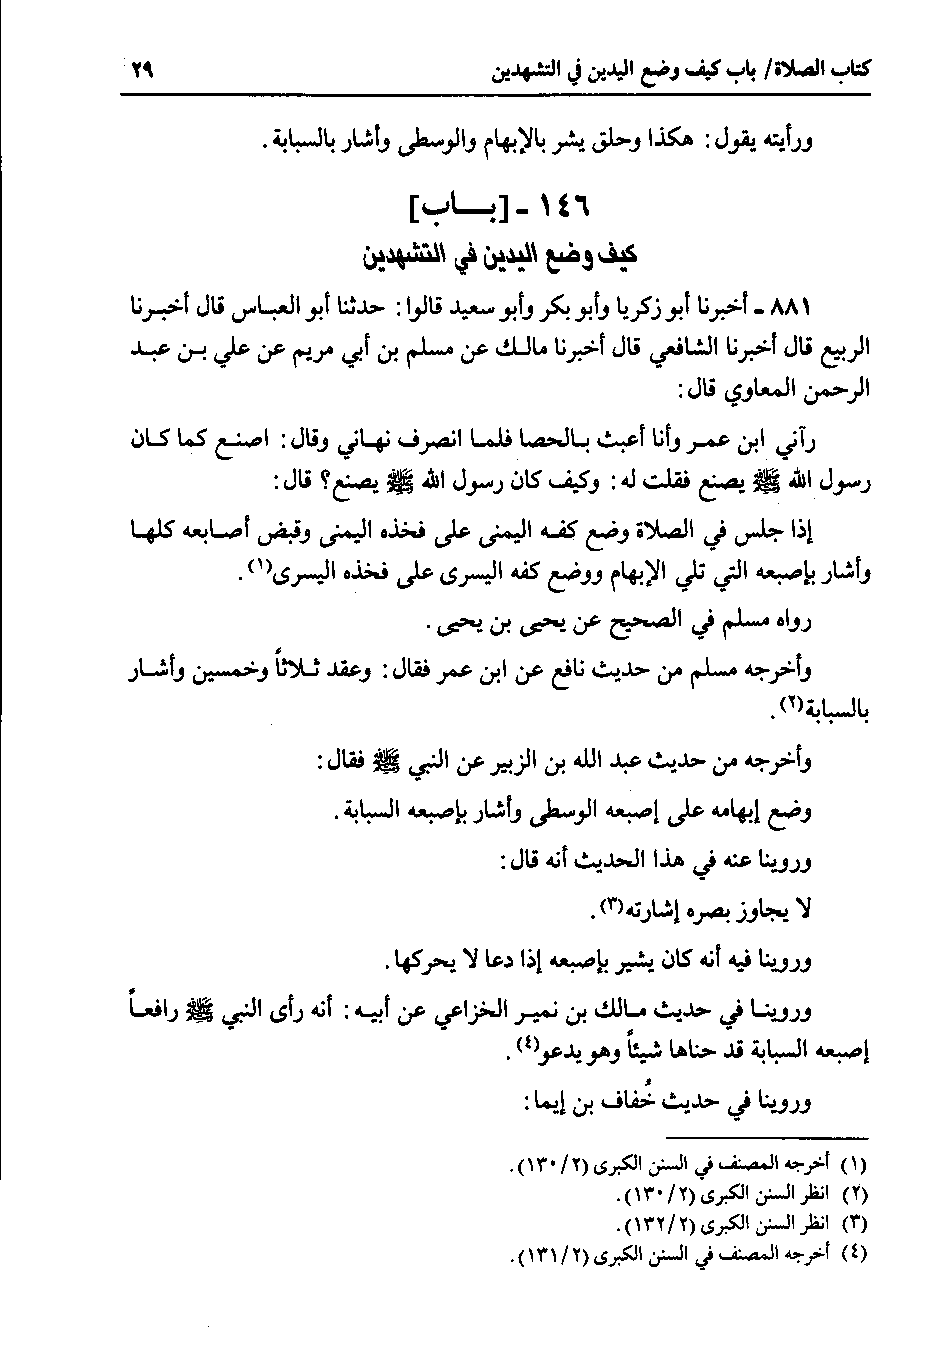 كتاب الصلاة/ باب كيف وضع اليدين في التشهدين ٢٩
ورأيته يقول: هكذا وحلق بشر بالإبهام والوسطى وأشار بالسبابة.
١٤٦ - [بـــاب]
كيف وضع اليدين في التشهدين
٨٨١ - أخبرنا أبو زكريا وأبو بكر وأبو سعيد قالوا: حدثنا أبو العباس قال أخبرنا
الربيع قال أخبرنا الشافعي قال أخبرنا مالك عن مسلم بن أبي مريم عن علي بن عبد
الرحمن المعاوي قال:
رآني ابن عمر وأنا أعبث بالحصا فلما انصرف نهاني وقال: اصنع كما كان
رسول الله ﷺ يصنع فقلت له: وكيف كان رسول الله ﷺ يصنع؟ قال:
إذا جلس في الصلاة وضع كفه اليمنى على فخذه اليمنى وقبض أصابعه كلها
وأشار بإصبعه التي تلي الإبهام ووضع كفه اليسرى على فخذه اليسرى(١).
رواه مسلم في الصحيح عن يحيى بن يحيى.
وأخرجه مسلم من حديث نافع عن ابن عمر فقال: وعقد ثلاثاً وخمسين وأشار
بالسبابة(٢).
وأخرجه من حديث عبد الله بن الزبير عن النبي ﷺ فقال:
وضع إبهامه على إصبعه الوسطى وأشار بإصبعه السبابة.
وروينا عنه في هذا الحديث أنه قال:
لا يجاوز بصره إشارته(٣).
وروينا فيه أنه كان يشير بإصبعه إذا دعا لا يحركها.
وروينا في حديث مالك بن نمير الخزاعي عن أبيه: أنه رأى النبي ﷺ رافعاً
إصبعه السبابة قد حناها شيئاً وهو يدعو(٤).
وروينا في حديث خُفاف بن إيما:
(١) أخرجه المصنف في السنن الكبرى (٢/ ١٣٠).
(٢) انظر السنن الكبرى (٢/ ١٣٠).
(٣) انظر السنن الكبرى (٢/ ١٣٢).
(٤) أخرجه المصنف في السنن الكبرى (٢/ ١٣١).